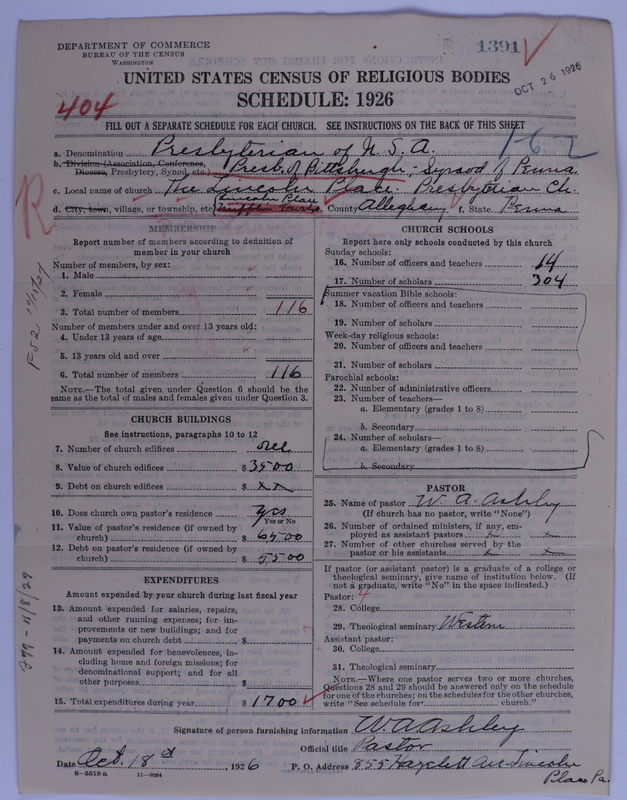 DEPARTMENT OF COMMERCE
BUREAU OF THE CENSUS
WASHINGTON
1391
OCT 26 1926
UNITED STATES CENSUS OF RELIGIOUS BODIES
SCHEDULE: 1926
404
FILL OUT A SEPARATE SCHEDULE FOR EACH CHURCH. SEE INSTRUCTIONS ON THE BACK OF THIS SHEET
162
a. Denomination Presbyterian of U. S. A.
b. Division (Association, Conference, Diocese, Presbytery, Synod, etc.) Presb. of Pittsburgh, Synod of Penna
c. Local name of church The Lincoln Place Presbyterian Ch.
d. City, town, village, or township, etc. Lincoln Place Mifflin Township County Allegheny f. State Penna
R
MEMBERSHIP
Report number of members according to definition of member in your church
Number of members, by sex:
1. Male
2. Female
3. Total number of members 116
Number of members under and over 13 years old:
4. Under 13 years of age
5. 13 years old and over
6. Total number of members 116
NOTE.—The total given under Question 6 should be the same as the total of males and females given under Question 3.
CHURCH BUILDINGS
See instructions, paragraphs 10 to 12
7. Number of church edifices one
8. Value of church edifices $ 3500
9. Debt on church edifices $ xx
10. Does church own pastor's residence? Yes
Yes or No
11. Value of pastor's residence (if owned by church) $ 6500
12. Debt on pastor's residence (if owned by church) $ 5500
EXPENDITURES
Amount expended by your church during last fiscal year
13. Amount expended for salaries, repairs, and other running expenses; for improvements or new buildings; and for payments on church debt $
14. Amount expended for benevolences, including home and foreign missions; for denominational support; and for all other purposes $
15. Total expenditures during year $ 1700
CHURCH SCHOOLS
Report here only schools conducted by this church
Sunday schools:
16. Number of officers and teachers 14
17. Number of scholars 304
Summer vacation Bible schools:
18. Number of officers and teachers
19. Number of scholars
Week-day religious schools:
20. Number of officers and teachers
21. Number of scholars
Parochial schools:
22. Number of administrative officers
23. Number of teachers—
a. Elementary (grades 1 to 8)
b. Secondary
24. Number of scholars—
a. Elementary (grades 1 to 8)
b. Secondary
PASTOR
25. Name of pastor W. A. Ashley
(If church has no pastor, write "None")
26. Number of ordained ministers, if any, employed as assistant pastors
27. Number of other churches served by the pastor or his assistants
If pastor (or assistant pastor) is a graduate of a college or theological seminary, give name of institution below. (If not a graduate, write "No" in the space indicated.)
Pastor: 4
28. College
29. Theological seminary Western
Assistant pastor:
30. College
31. Theological seminary
NOTE.—Where one pastor serves two or more churches, Questions 28 and 29 should be answered only on the schedule for one of the churches; on the schedules for the other churches, write "See schedule for church."
Signature of person furnishing information W A Ashley
Official title Pastor
Date Oct. 18th, 1926 P. O. Address 855 Hazlett Ave Lincoln Place Pa.
8—5518 a
11—9054
279 - 11/8/29